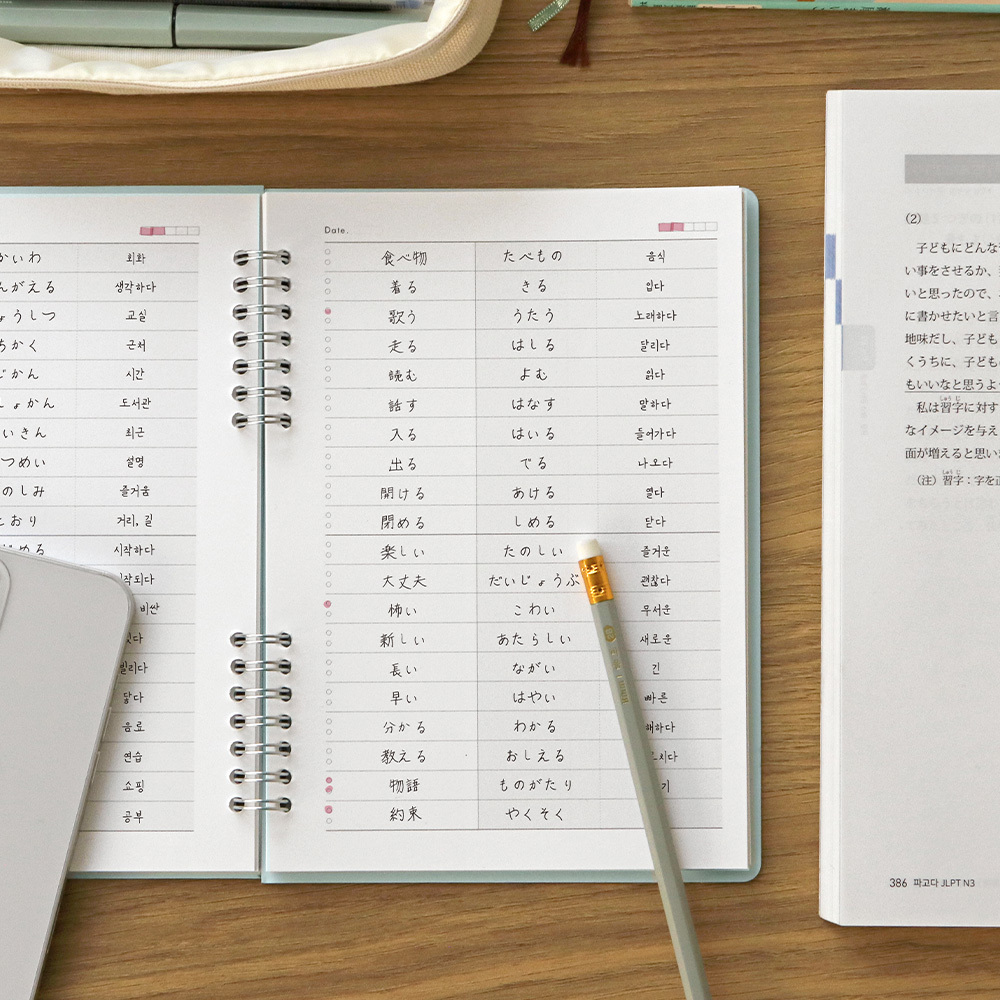 かいわ 회화
んがえる 생각하다
ょうしつ 교실
ちかく 근처
じかん 시간
しょかん 도서관
いきん 최근
つめい 설명
のしみ 즐거움
とおり 거리, 길
める 시작하다
작되다
비싼
빌리다
닿다
음료
연습
쇼핑
공부
Date.
食べ物 たべもの 음식
着る きる 입다
歌う うたう 노래하다
走る はしる 달리다
読む よむ 읽다
話す はなす 말하다
入る はいる 들어가다
出る でる 나오다
開ける あける 열다
閉める しめる 닫다
楽しい たのしい 즐거운
大丈夫 だいじょうぶ 괜찮다
怖い こわい 무서운
新しい あたらしい 새로운
長い ながい 긴
早い はやい 빠른
分かる わかる 해하다
教える おしえる 치다
物語 ものがたり 기
約束 やくそく
(2)
子どもにどんな
い事をさせるか、
いと思ったので、
に書かせたいと言
地味だし、子ども
くうちに、子ども
もいいなと思うよ
私は習字に対す
なイメージを与え
面が増えると思い
(注) 習字：字を正
386 파고다 JLPT N3